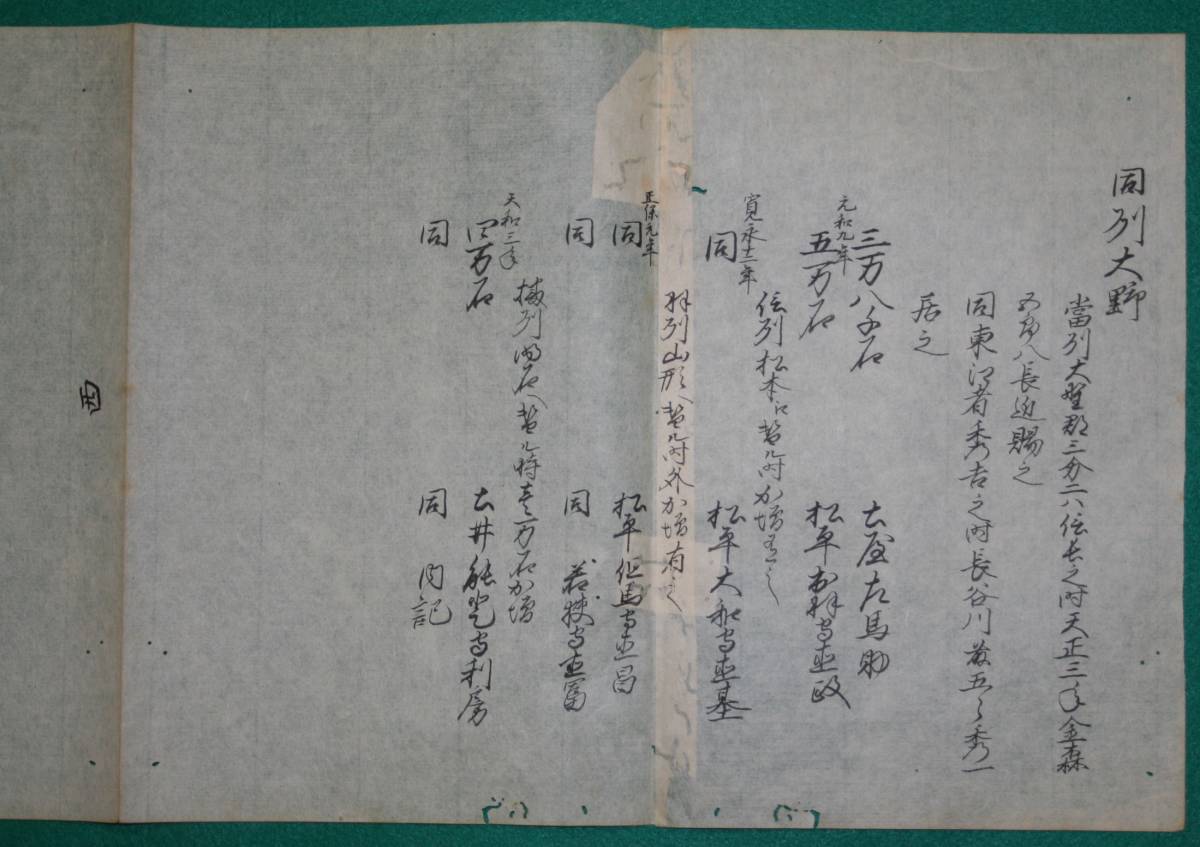 同列大野
當列大野郡三分二ハ信長之时天正三年金森
五郎八長近賜之
同東江者秀吉之时長谷川藤五郎秀一
居之
三万八千石　土屋左馬助
元和九年
五万石　松平出羽守直政
信列松本江替ル时加増有之
寛永十二年
同　松平大和守直基
羽列山形へ替ル时外加増有之
正保元年
同　松平但馬守直昌
同　同　若狭守直冨
播列明石へ替ル時壱万石加増
天和三年
四万石　土井能登守利房
同　同　内記
西